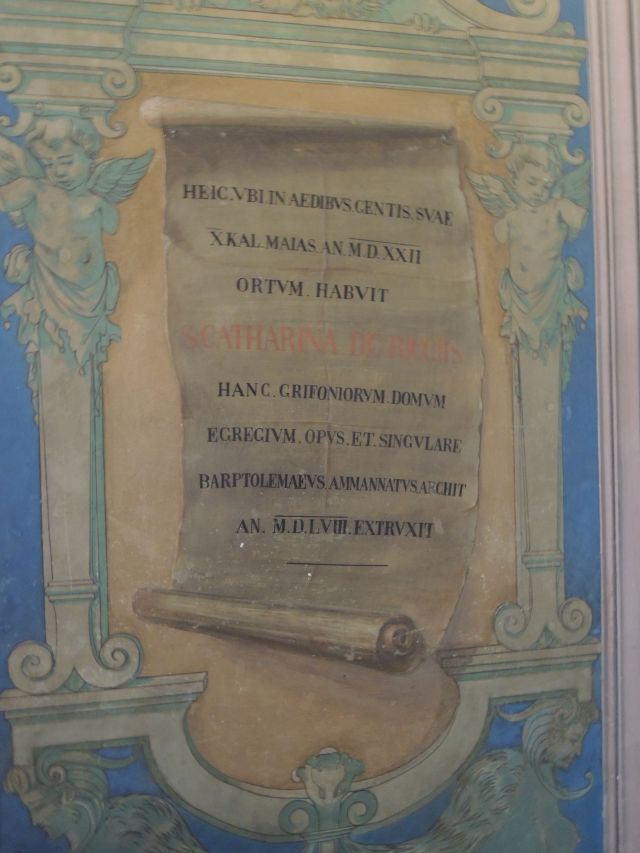 HEIC.VBI.IN AEDIBVS.GENTIS.SVAE
X.KAL.MAIAS.AN.M.D.XXII
ORTVM.HABVIT
S.CATHARINA DE RICCIIS
HANC.GRIFONIORVM.DOMVM
EGREGIVM.OPVS.ET.SINGVLARE
BARPTOLEMAEVS.AMMANNATVS.ARCHIT
AN. M.D.LVIII.EXTRVXIT